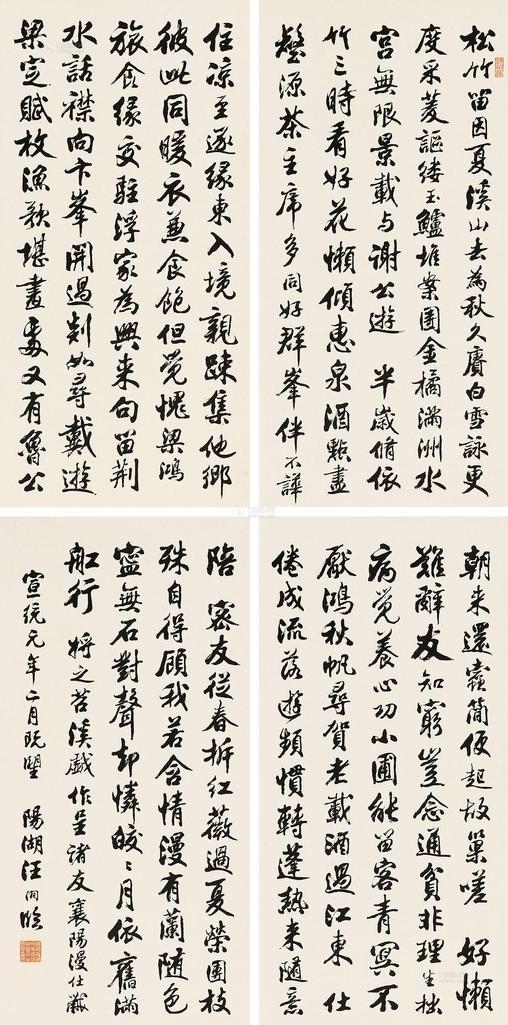 松竹留因夏溪山去為秋久賡白雪詠更
度采菱謳縷玉鱸堆案團金橘滿洲水
宮無限景載与謝公遊 半歲脩依
竹三時看好花懶傾惠泉酒點盡
壑源茶主席多同好群峯伴不譁
朝来還蠹簡便起故巢嗟 好懶
難辭友知窮豈念通貧非理生拙
病覺養心功小圃能留客青冥不
厭鴻秋帆尋賀老載酒過江東 仕
倦成流落遊頻慣轉蓬熱来隨意
住涼至遂緣東入境親疎集他鄉
彼此同暖衣兼食飽但覺愧梁鴻
旅食緣交駐浮家為興来句留荆
水話襟向卞峯開過剡如尋戴遊
梁定賦枚漁歌堪畫處又有魯公
陪 密友從春拆紅薇過夏榮團枝
殊自得顧我若含情漫有蘭隨色
寧無石對聲却憐皎〻月依舊滿
舡行 將之苕溪戲作呈諸友襄陽漫仕黻
宣統元年二月既望 陽湖汪洵臨